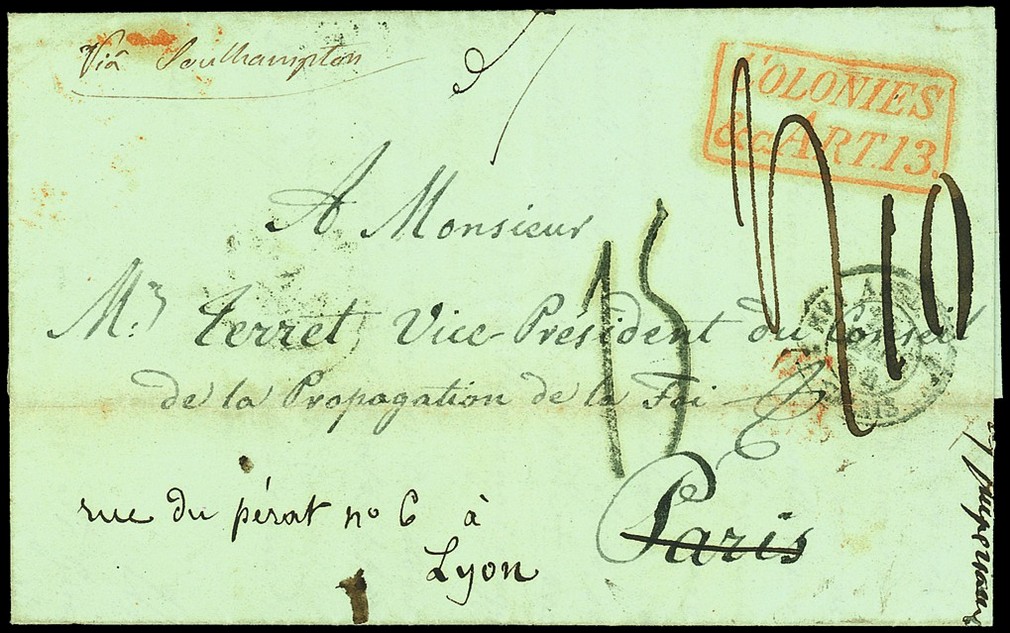 Viâ Southampton
COLONIES
&c. ART 13.
A Monsieur
Mr. Terret Vice-Président du Conseil
de la Propagation de la Foi &
Paris
15
10
rue du pérat no 6 à
Lyon